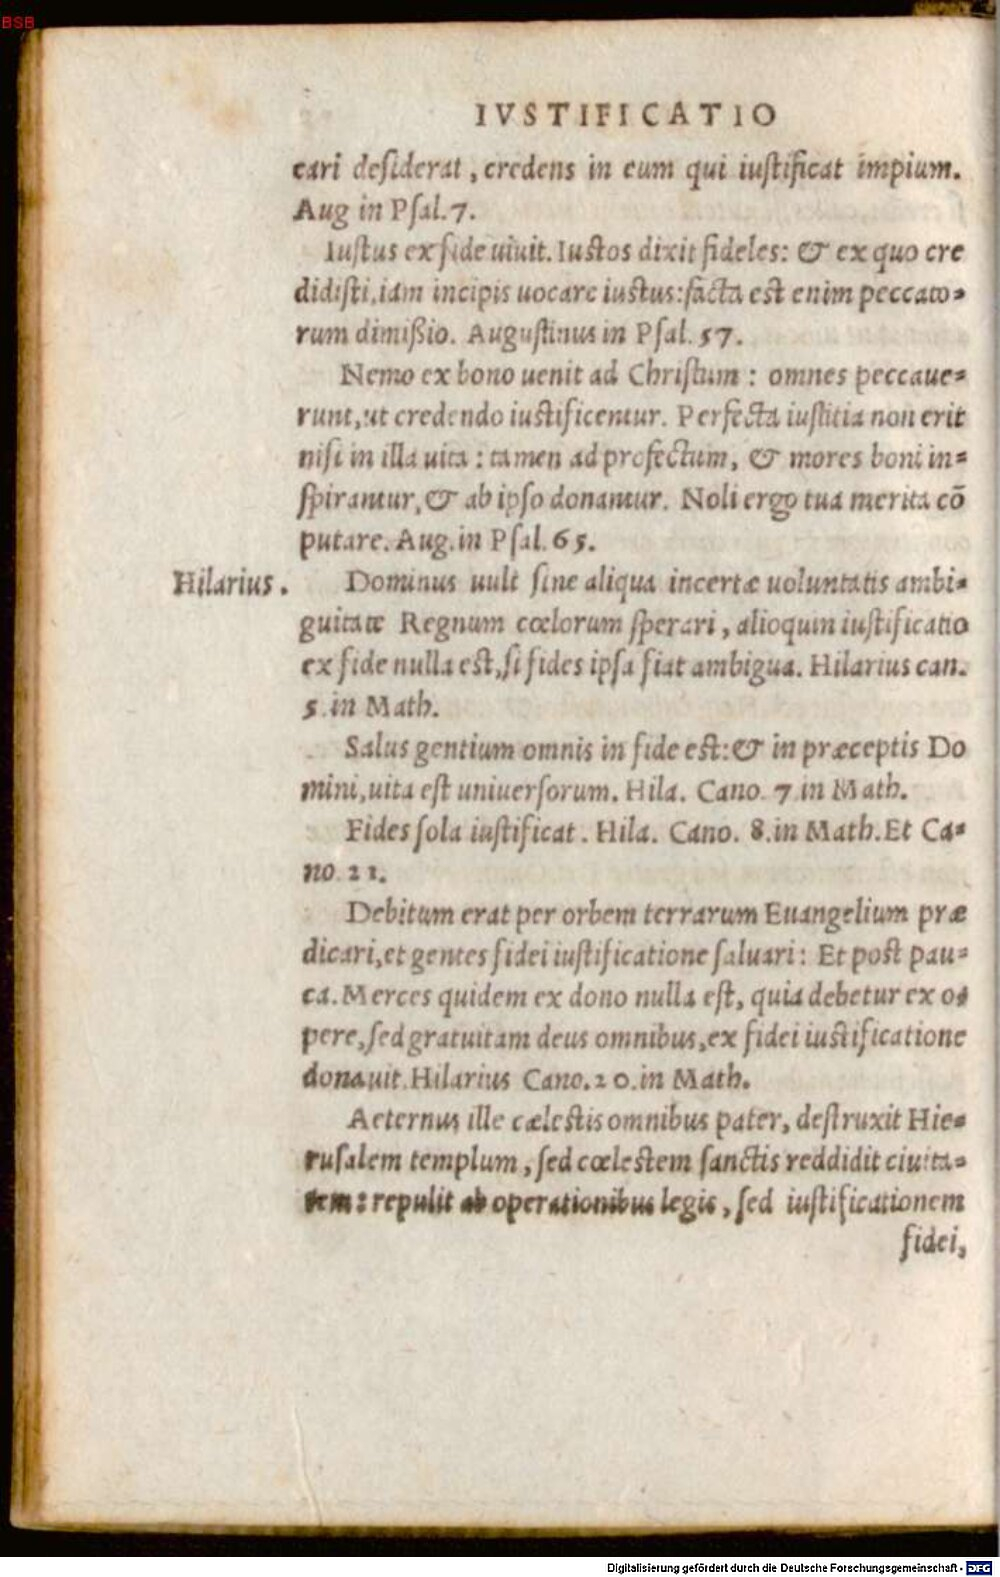 BSB
IVSTIFICATIO
cari desiderat, credens in eum qui iustificat impium.
Aug in Psal. 7.
Iustus ex fide uiuit. Iustos dixit fideles: & ex quo cre
didisti, iam incipis uocare iustus: facta est enim peccato=
rum dimißio. Augustinus in Psal. 57.
Nemo ex bono uenit ad Christum : omnes peccaue=
runt, ut credendo iustificentur. Perfecta iustitia non erit
nisi in illa uita : tamen ad profectum, & mores boni in=
spirantur, & ab ipso donantur. Noli ergo tua merita cō
putare. Aug. in Psal. 65.
Hilarius.
Dominus uult sine aliqua incertæ uoluntatis ambi=
guitate Regnum cœlorum sperari, alioquin iustificatio
ex fide nulla est, si fides ipsa fiat ambigua. Hilarius can.
5. in Math.
Salus gentium omnis in fide est: & in præceptis Do
mini, uita est uniuersorum. Hila. Cano. 7 in Math.
Fides sola iustificat. Hila. Cano. 8. in Math. Et Ca=
no. 21.
Debitum erat per orbem terrarum Euangelium præ
dicari, et gentes fidei iustificatione saluari: Et post pau=
ca. Merces quidem ex dono nulla est, quia debetur ex o=
pere, sed gratuitam deus omnibus, ex fidei iustificatione
donauit. Hilarius Cano. 20. in Math.
Aeternus ille cælestis omnibus pater, destruxit Hie=
rusalem templum, sed cœlestem sanctis reddidit ciuita=
tem : repulit ab operationibus legis, sed iustificationem
fidei,
Digitalisierung gefördert durch die Deutsche Forschungsgemeinschaft - DFG